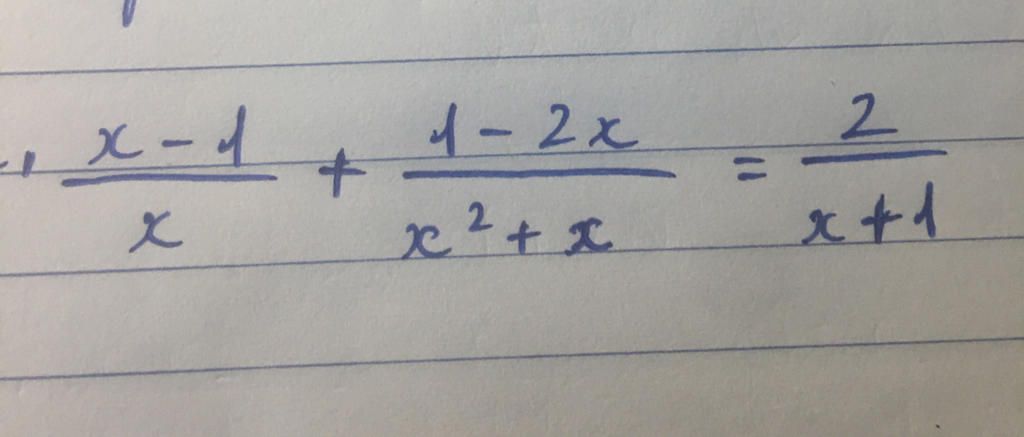 x - 1 / x + 1 - 2x / x² + x = 2 / x + 1